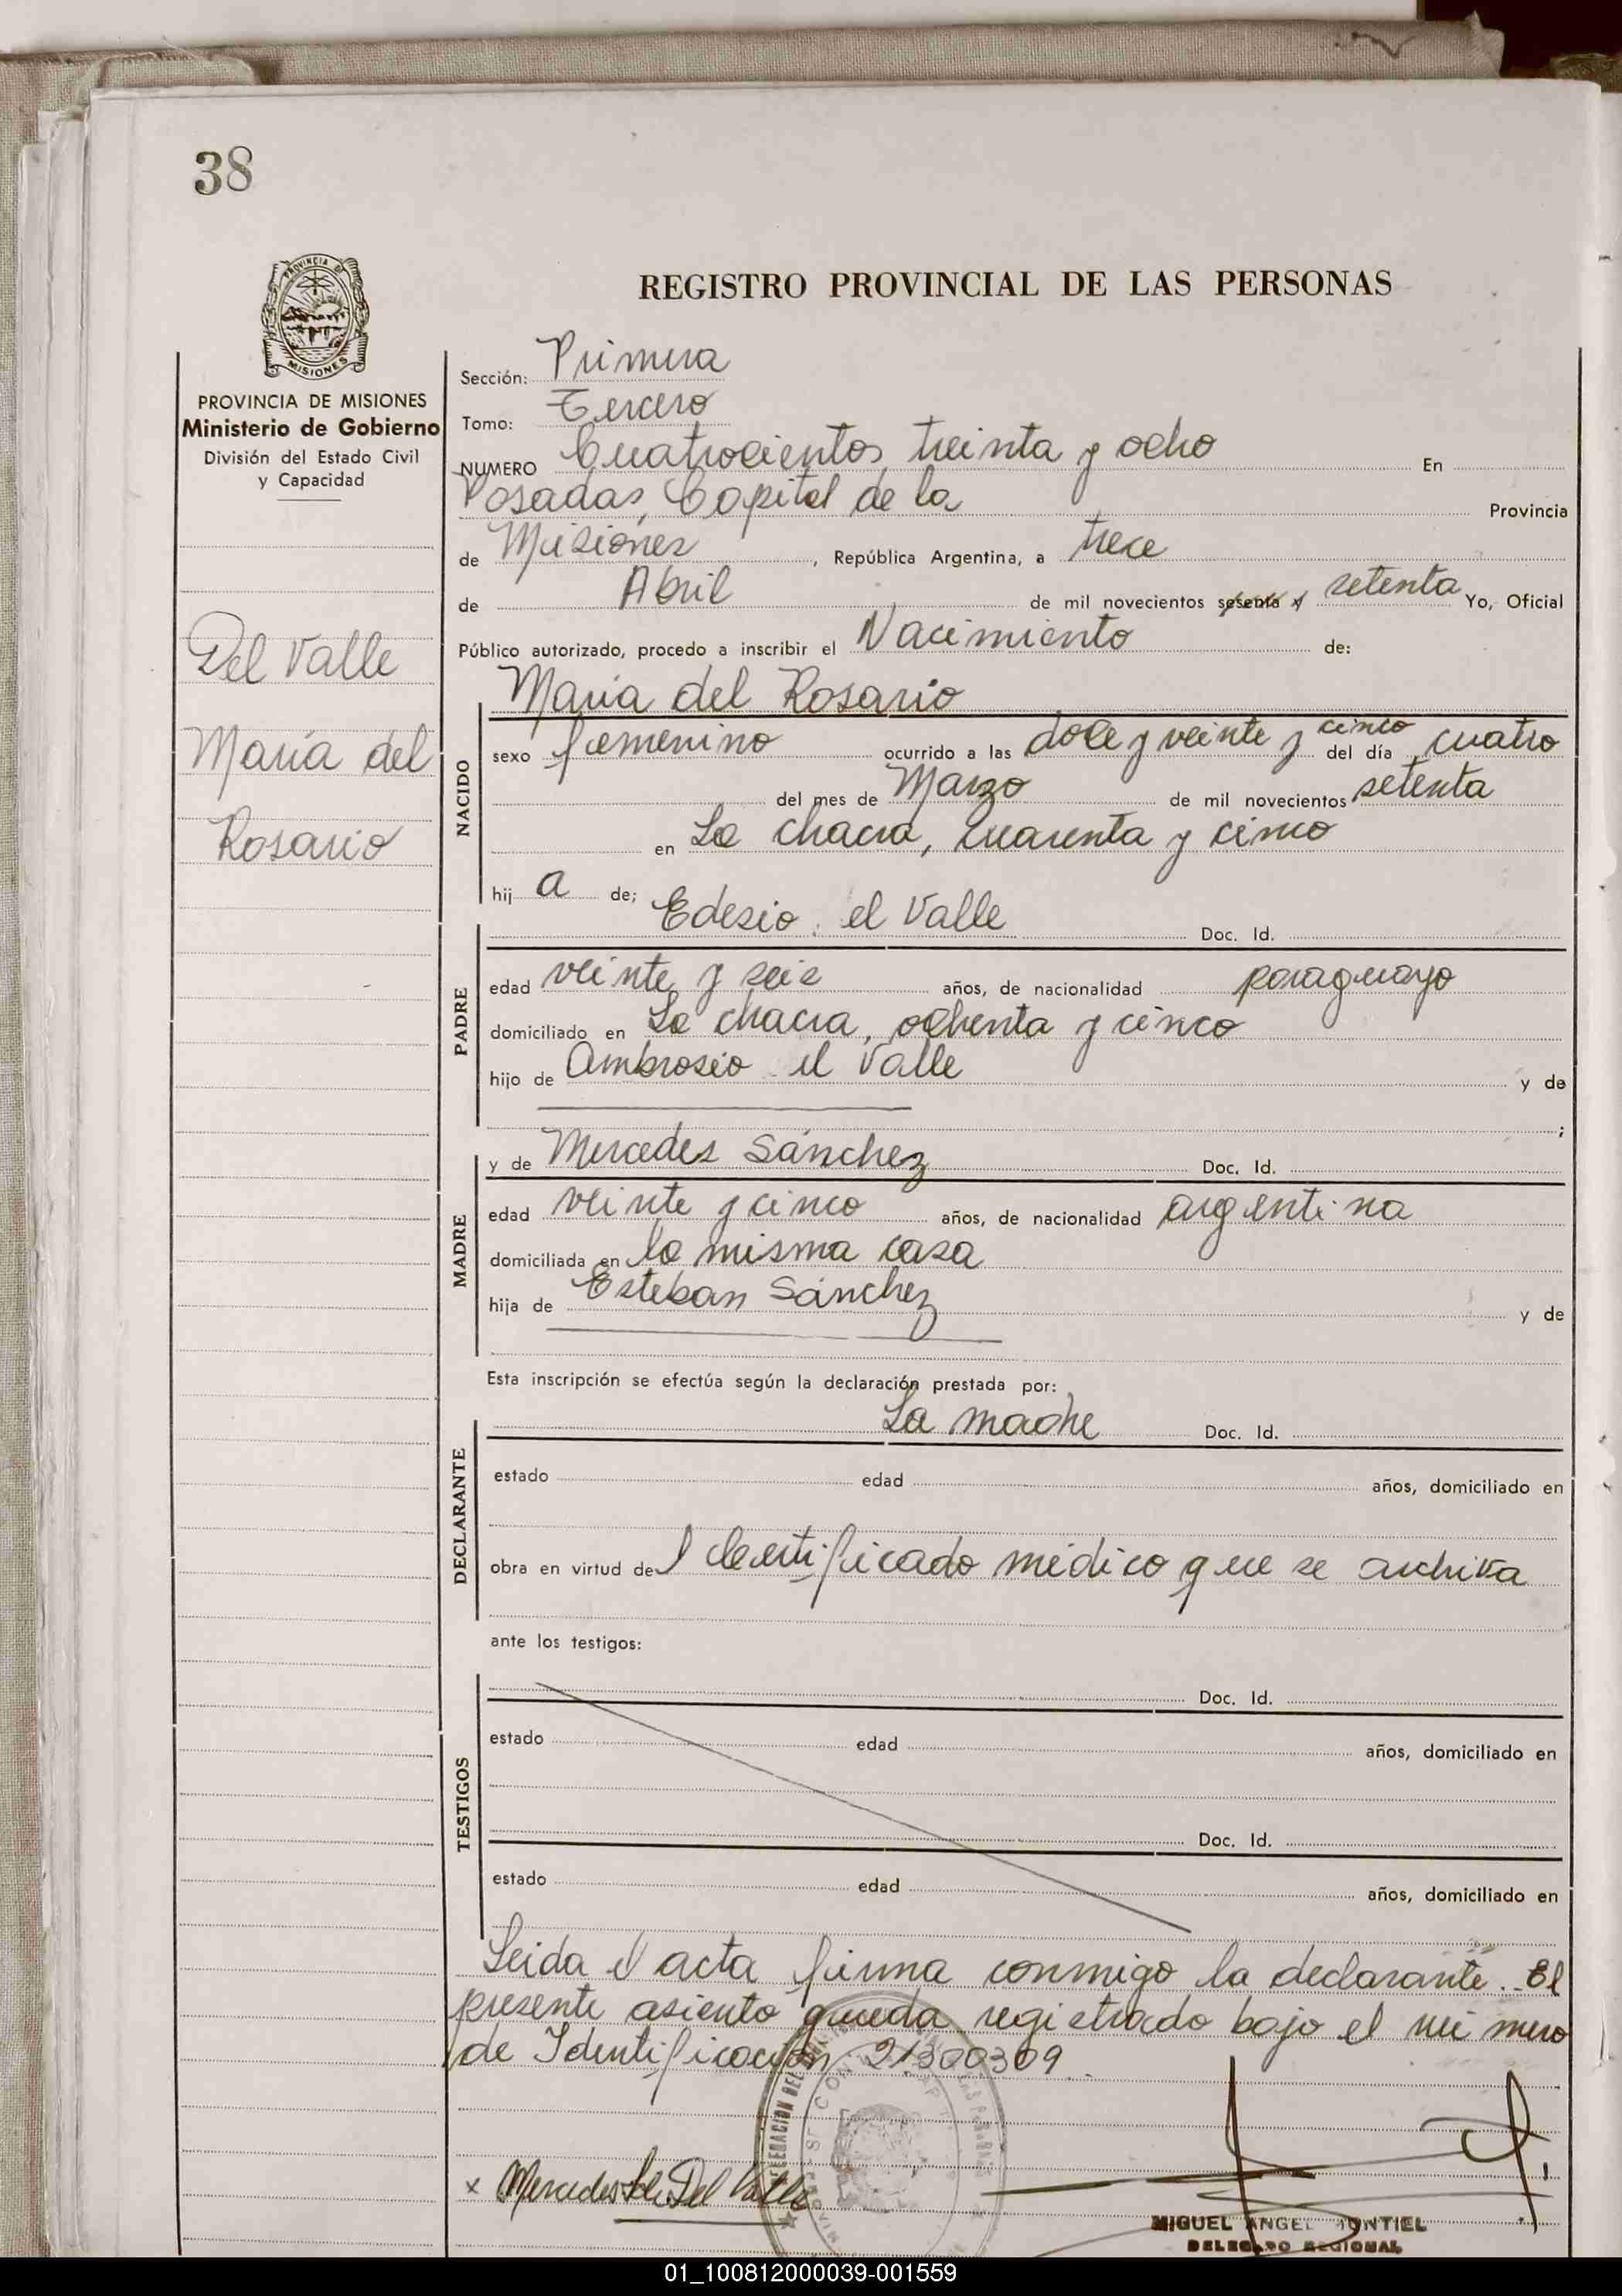 38
REGISTRO PROVINCIAL DE LAS PERSONAS
PROVINCIA DE MISIONES
Ministerio de Gobierno
División del Estado Civil
y Capacidad
Del Valle
María del
Rosario
Sección: Primera
Tomo: Tercero
NUMERO Cuatrocientos treinta y ocho En
Posadas, Capital de la Provincia
de Misiones, República Argentina, a trece
de Abril de mil novecientos sesenta y setenta Yo, Oficial
Público autorizado, procedo a inscribir el Nacimiento de:
María del Rosario
NACIDO
sexo femenino ocurrido a las doce y veinte y cinco del día cuatro
del mes de Marzo de mil novecientos setenta
en La chacra, cuarenta y cinco
hij a de;
Edesio el Valle Doc. Id.
PADRE
edad veinte y seis años, de nacionalidad paraguayo
domiciliado en La chacra, ochenta y cinco
hijo de Ambrosio el Valle y de
;
y de Mercedes Sánchez Doc. Id.
MADRE
edad veinte y cinco años, de nacionalidad argentina
domiciliada en la misma casa
hija de Esteban Sánchez y de
Esta inscripción se efectúa según la declaración prestada por:
La madre Doc. Id.
DECLARANTE
estado edad años, domiciliado en
obra en virtud del certificado médico que se archiva
ante los testigos:
Doc. Id.
TESTIGOS
estado edad años, domiciliado en
Doc. Id.
estado edad años, domiciliado en
Leida el acta firma conmigo la declarante. El
presente asiento queda registrado bajo el número
de Identificación 21300309
x Mercedes S de Del Valle
MIGUEL ANGEL MONTIEL
DELEGADO REGIONAL
01_100812000039-001559